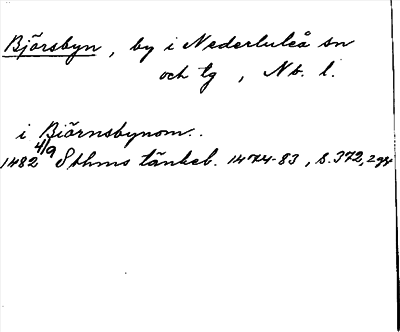 Björsbyn, by i Nederluleå sn
och tg, Nb. l.
i Biörnsbynom..
1482 4/9 Sthms tänkeb. 1474-83, s. 372, 2 ggr